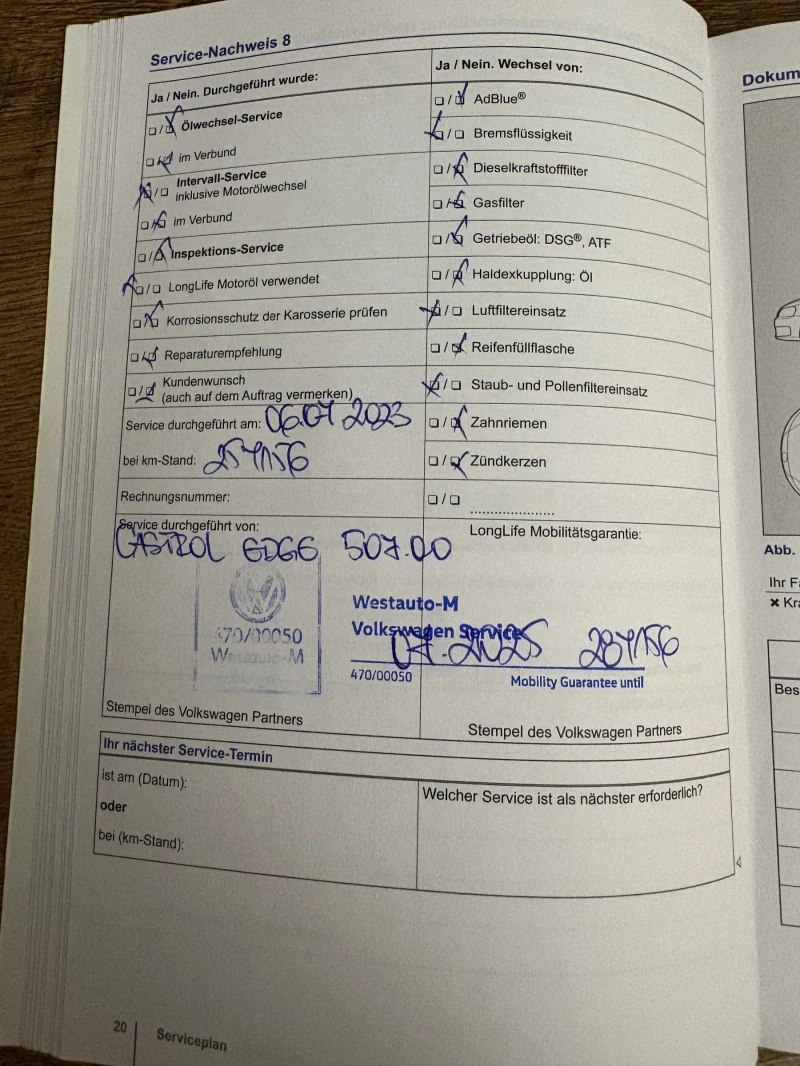 Service-Nachweis 8
Ja / Nein. Durchgeführt wurde:
Ölwechsel-Service
im Verbund
Intervall-Service
inklusive Motorölwechsel
im Verbund
Inspektions-Service
LongLife Motoröl verwendet
Korrosionsschutz der Karosserie prüfen
Reparaturempfehlung
Kundenwunsch
(auch auf dem Auftrag vermerken)
Service durchgeführt am: 06.07 2023
bei km-Stand: 257156
Rechnungsnummer:
Service durchgeführt von:
CASTROL EDGE 507.00
470/00050
Westauto-M
Stempel des Volkswagen Partners
Ja / Nein. Wechsel von:
AdBlue®
Bremsflüssigkeit
Dieselkraftstofffilter
Gasfilter
Getriebeöl: DSG®, ATF
Haldexkupplung: Öl
Luftfiltereinsatz
Reifenfüllflasche
Staub- und Pollenfiltereinsatz
Zahnriemen
Zündkerzen
....................
LongLife Mobilitätsgarantie:
Westauto-M
Volkswagen Service
07.2025 287156
470/00050 Mobility Guarantee until
Stempel des Volkswagen Partners
Ihr nächster Service-Termin
ist am (Datum):
oder
bei (km-Stand):
Welcher Service ist als nächster erforderlich?
20 Serviceplan
Dokum
Abb.
Ihr Fa
× Kra
Bes